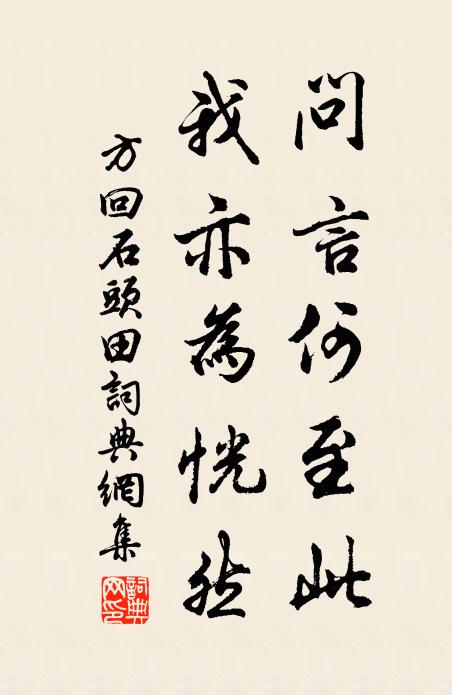 問言何至此
我亦為恍然
方回石頭田詞典網集
詞典網印